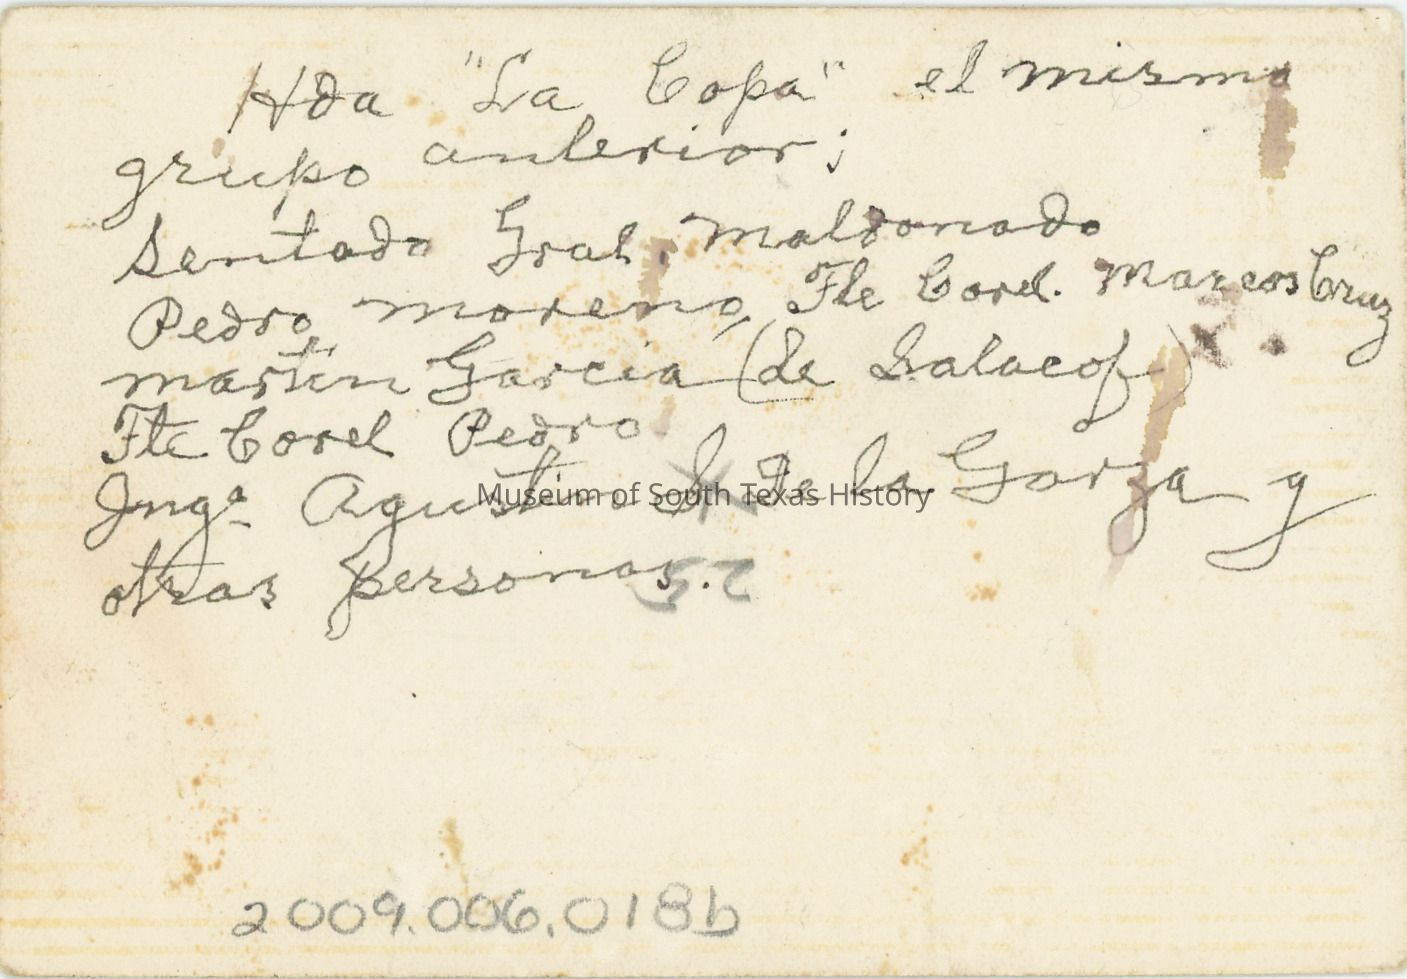 Hda "La Copa" el mismo
grupo anterior;
Sentado Gral. Maldonado
Pedro Moreno, Tte Corel. Marcos Cruz
Martin Garcia (de Galacof)
Tte Corel Pedro
Ing.ª Agustin S. De la Garza y
otras personas.
25
Museum of South Texas History
2009.006.018b